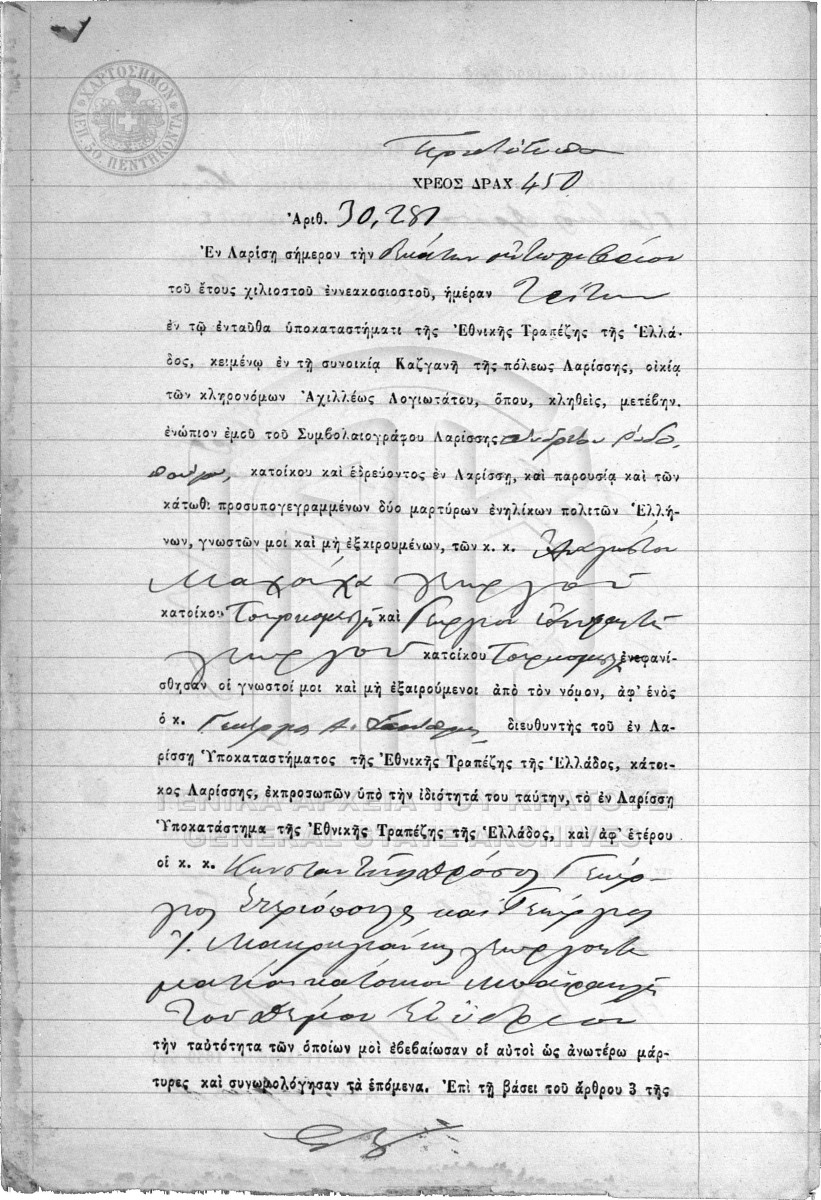 ΧΑΡΤΟΣΗΜΟΝ
ΛΕΠ. 50. ΠΕΝΤΗΚΟΝΤΑ
Πρωτότυπον
ΧΡΕΟΣ ΔΡΑΧ 450
Ἀριθ. 30,281
Ἐν Λαρίσῃ σήμερον τὴν
τοῦ ἔτους χιλιοστοῦ ἐννεακοσιοστοῦ, ἡμέραν Τρίτην
ἐν τῷ ἐνταῦθα ὑποκαταστήματι τῆς Ἐθνικῆς Τραπέζης τῆς Ἑλλά-
δος, κειμένῳ ἐν τῇ συνοικίᾳ Καζγανῆ τῆς πόλεως Λαρίσσης, οἰκίᾳ
τῶν κληρονόμων Ἀχιλλέως Λογιωτάτου, ὅπου, κληθεὶς, μετέβην.
ἐνώπιον ἐμοῦ τοῦ Συμβολαιογράφου Λαρίσσης Ἀνδρέου Ῥοδο
πούλου, κατοίκου καὶ ἑδρεύοντος ἐν Λαρίσσῃ, καὶ παρουσίᾳ καὶ τῶν
κάτωθι προσυπογεγραμμένων δύο μαρτύρων ἐνηλίκων πολιτῶν Ἑλλή-
νων, γνωστῶν μοι καὶ μὴ ἐξαιρουμένων, τῶν κ. κ.
γεωργοῦ
κατοίκου καὶ Γεωργίου
γεωργοῦ κατοίκου ἐνεφανί-
σθησαν οἱ γνωστοί μοι καὶ μὴ ἐξαιρούμενοι ἀπὸ τὸν νόμον, ἀφ' ἑνὸς
ὁ κ. Γεώργιος Α. διευθυντὴς τοῦ ἐν Λα-
ρίσσῃ Ὑποκαταστήματος τῆς Ἐθνικῆς Τραπέζης τῆς Ἑλλάδος, κάτοι-
κος Λαρίσσης, ἐκπροσωπῶν ὑπὸ τὴν ἰδιότητά του ταύτην, τὸ ἐν Λαρίσσῃ
ΓΕΝΙΚΑ ΑΡΧΕΙΑ ΤΟΥ ΚΡΑΤΟΥΣ
Ὑποκατάστημα τῆς Ἐθνικῆς Τραπέζης τῆς Ἑλλάδος, καὶ ἀφ' ἑτέρου
GENERAL STATE ARCHIVES
οἱ κ. κ. Γεώρ-
γιος Στεριόπουλος καὶ Γεώργιος
Ἰ. Μακρυγιάννης γεωργοκτη
ματίαι κάτοικοι
τοῦ δήμου
τὴν ταὐτότητα τῶν ὁποίων μοὶ ἐβεβαίωσαν οἱ αὐτοὶ ὡς ἀνωτέρω μάρ-
τυρες καὶ συνωμολόγησαν τὰ ἑπόμενα. Ἐπὶ τῇ βάσει τοῦ ἄρθρου 3 τῆς